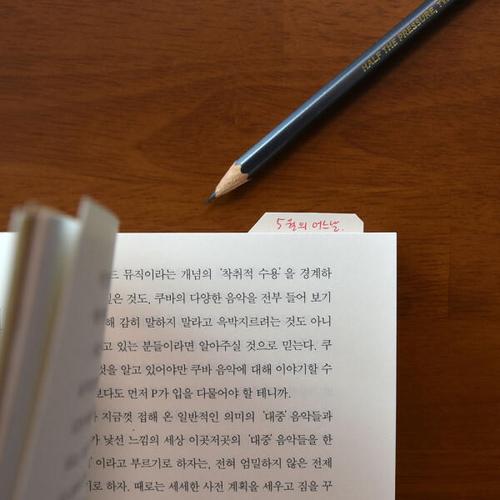 HALF THE PRESSURE,
5월의 어느날.
뮤직이라는 개념의 '착취적 수용'을 경계하
것은 것도, 쿠바의 다양한 음악을 전부 들어 보기
감히 말하지 말라고 윽박지르려는 것도 아니
고 있는 분들이라면 알아주실 것으로 믿는다. 쿠
것을 알고 있어야만 쿠바 음악에 대해 이야기할 수
보다도 먼저 P가 입을 다물어야 할 테니까.
지금껏 접해 온 일반적인 의미의 '대중'음악들과
가 낯선 느낌의 세상 이곳저곳의 '대중'음악들을 한
'이라고 부르기로 하자는, 전혀 엄밀하지 않은 전제
기로 하자. 때로는 세세한 사전 계획을 세우고 짐을 꾸